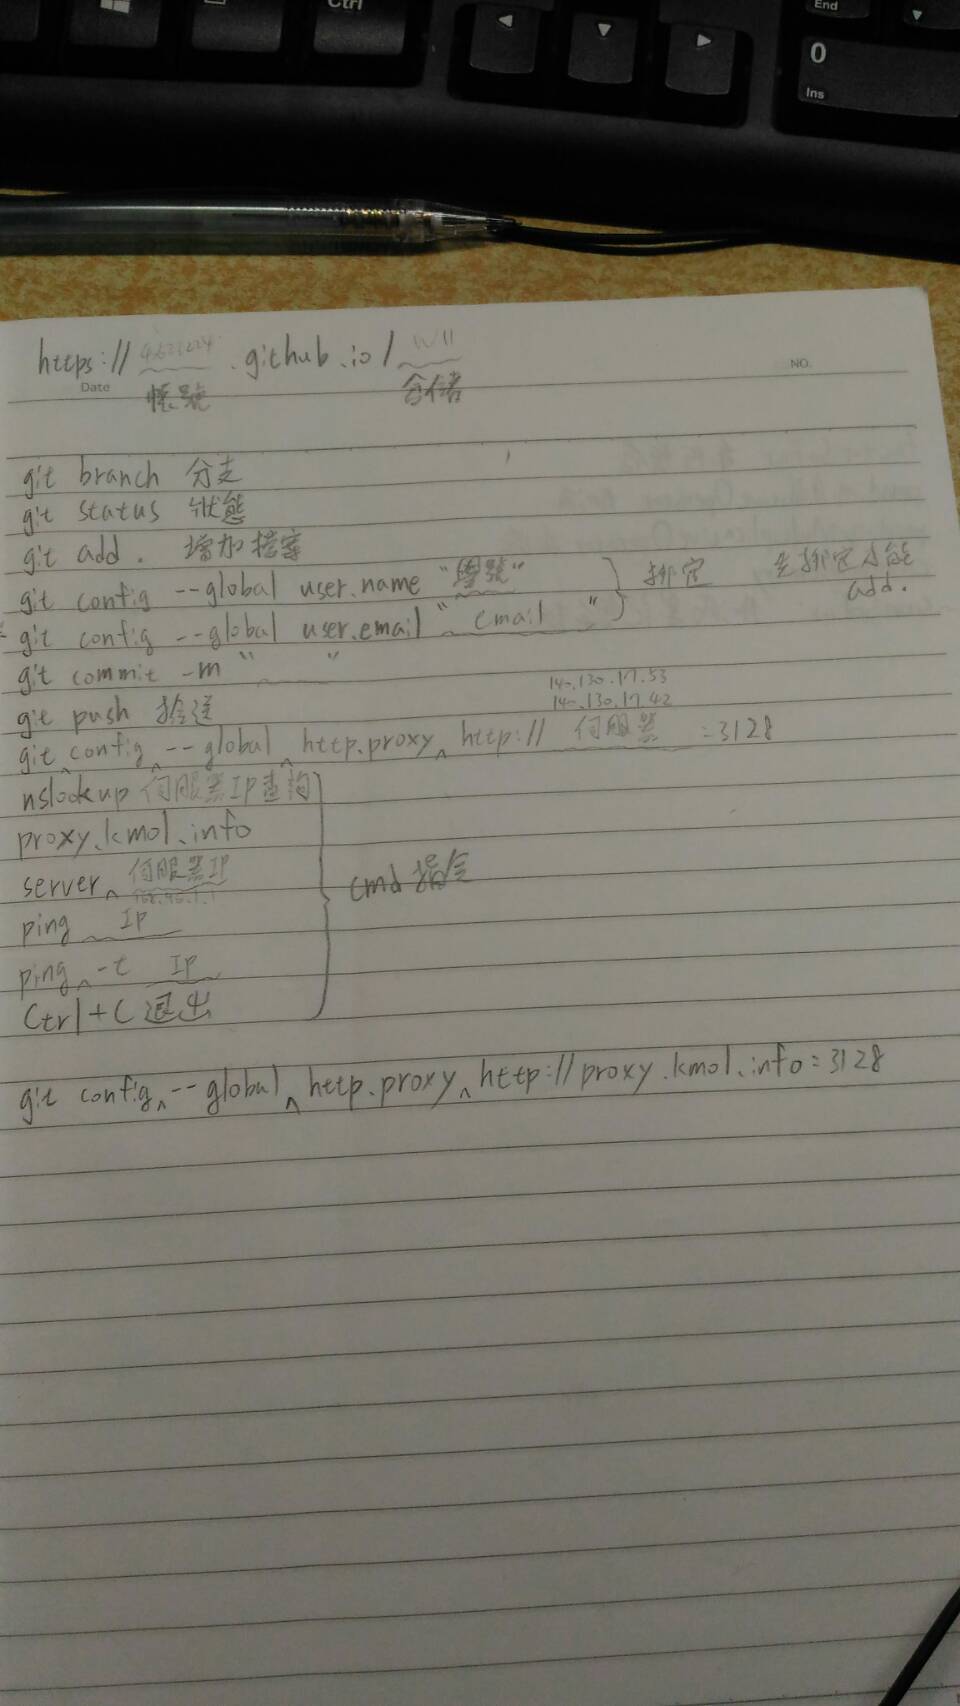 Ctrl
End
0
Ins
https:// .github.io/ W11
Date 帳號 倉儲 NO.
git branch 分支
git status 狀態
git add . 增加檔案
git config --global user.name "學號" } 綁定 先綁定才能
git config --global user.email "email" add.
git commit -m " "
git push 推送
140.130.17.53
140.130.17.42
git config --global http.proxy http:// 伺服器 :3128
nslookup 伺服器IP查詢
proxy.kmol.info
server 伺服器IP
cmd 指令
ping IP
ping -t IP
Ctrl+C 退出
git config --global http.proxy http://proxy.kmol.info:3128